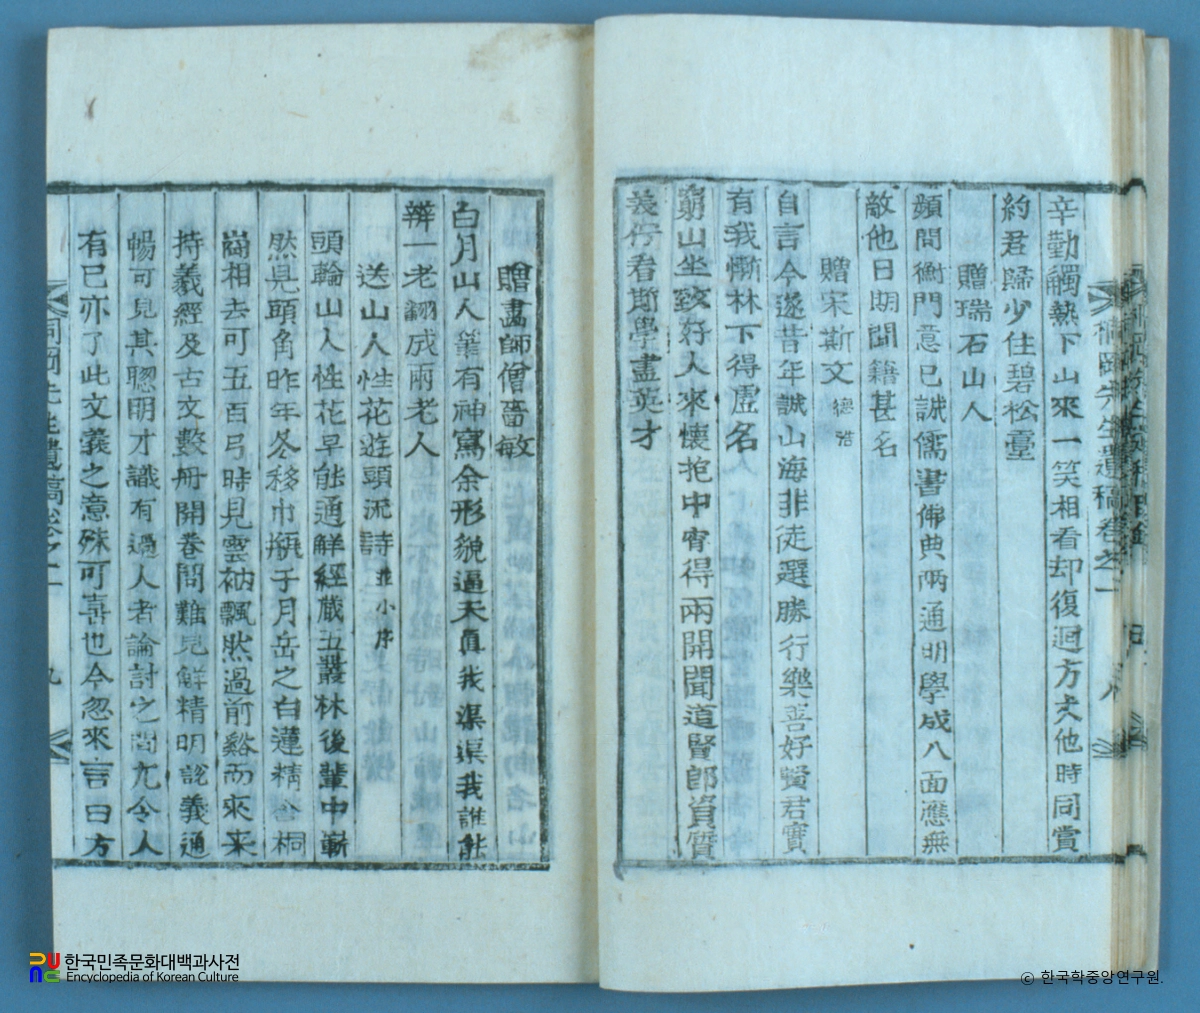 桐岡先生遺稿卷之一 八
辛勤觸熱下山來一笑相看却復迴方丈他時同賞
約君歸少住碧松臺
贈瑞石山人
頻問衡門意已誠儒書佛典兩通明學成八面應無
敵他日期聞籍甚名
贈宋斯文德浩
自言今遂昔年誠山海非徒選勝行樂善好賢君實
有我慚林下得虛名
窮山坐致好人來懷抱中宵得兩開聞道賢郎資質
美佇看斯學盡英才
贈畵師僧 敏
白月山人筆有神寫余形貌逼天眞我渠渠我誰能
辨一老翻成兩老人
送山人性花遊頭流詩並小序
頭輪山人性花早能通解經藏五叢林後輩中嶄
然見頭角昨年冬移巾甁于月岳之白蓮精舍桐
崗相去可五百弓時見雲衲飄然過前谿而來来
持羲經及古文數冊開卷問難見解精明說義通
暢可見其聰明才識有過人者論討之間尤令人
有已亦了此文義之意殊可喜也今忽來言曰方
桐岡先生遺稿卷之一 九
한국민족문화대백과사전
Encyclopedia of Korean Culture
© 한국학중앙연구원.